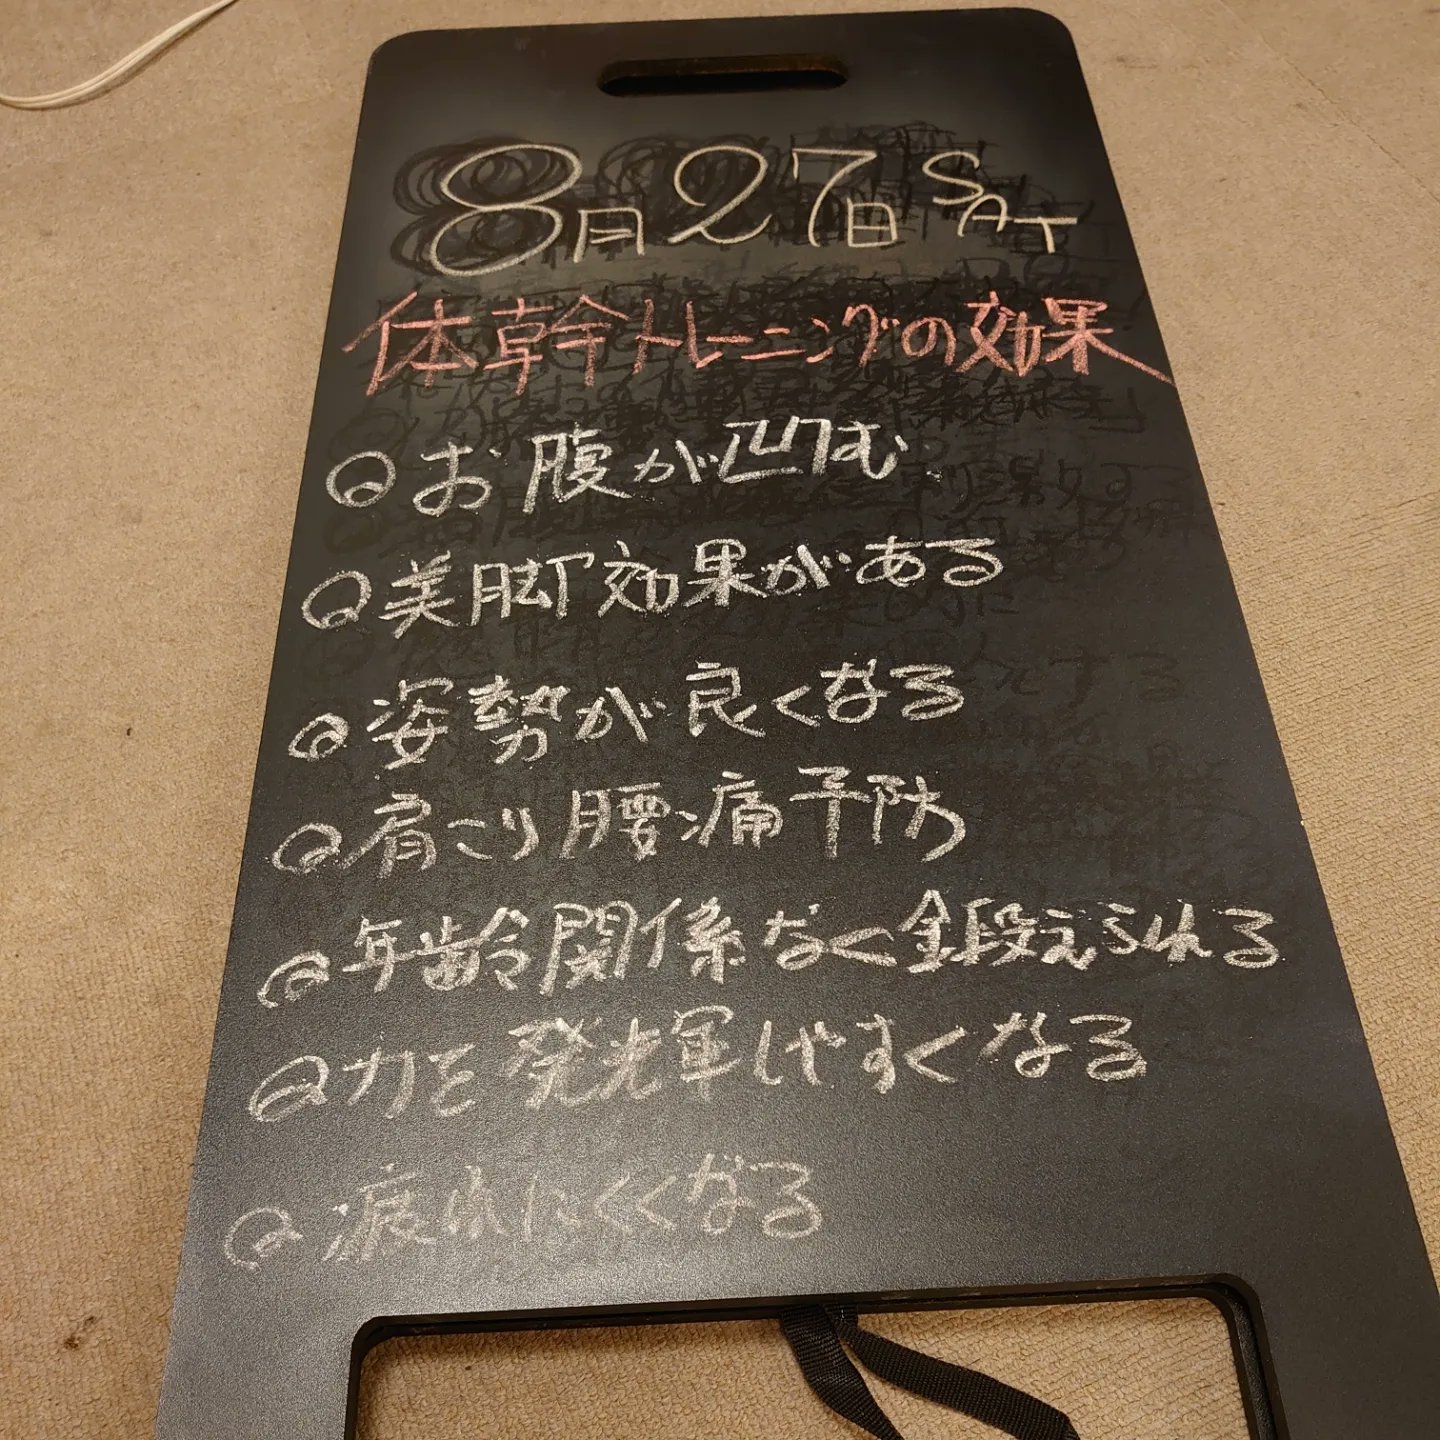 8月27日 SAT
体幹トレーニングの効果
お腹が凹む
美脚効果がある
姿勢が良くなる
肩こり腰痛予防
年齢関係なく鍛えられる
力を発揮しやすくなる
疲れにくくなる